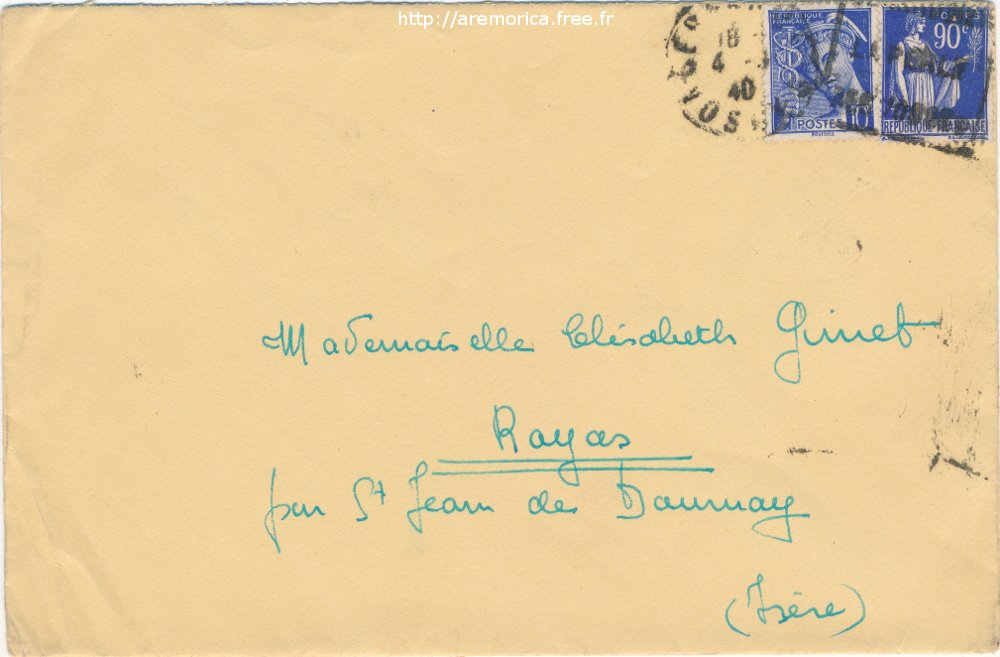 http://aremorica.free.fr
18
4
40
VOSGES
REPUBLIQUE
FRANÇAISE
POSTES
10
POSTES
90c
REPUBLIQUE FRANÇAISE
Mademoiselle Elisabeth Ginet
Royas
par St Jean de Bournay
(Isère)